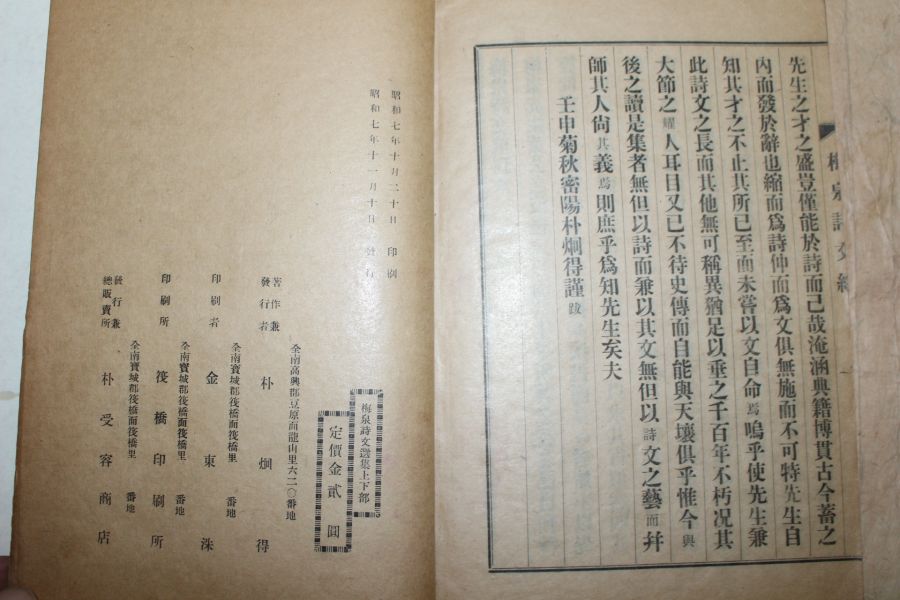 先生之才之盛豈僅能於詩而已哉淹涵典籍博貫古今蓄之
內而發於辭也縮而爲詩伸而爲文俱無施而不可特先生自
知其才之不止其所已至而未嘗以文自命焉嗚乎使先生兼
此詩文之長而其他無可稱異猶足以垂之千百年不朽况其
大節之耀人耳目又已不待史傳而自能與天壤俱乎惟今與
後之讀是集者無但以詩而兼以其文無但以詩文之藝而幷
師其人尙其義焉則庶乎爲知先生矣夫
壬申菊秋密陽朴炯得謹跋
梅泉詩文
梅泉詩文選集上下部
定價金貳圓
昭和七年十月二十日 印刷
昭和七年十一月十日 發行
全南高興郡豆原面龍山里六二〇番地
著作兼發行者 朴炯得
全南寶城郡筏橋面筏橋里 番地
印刷者 金東洙
全南寶城郡筏橋面筏橋里 番地
印刷所 筏橋印刷所
全南寶城郡筏橋面筏橋里 番地
發行兼總販賣所 朴受容商店